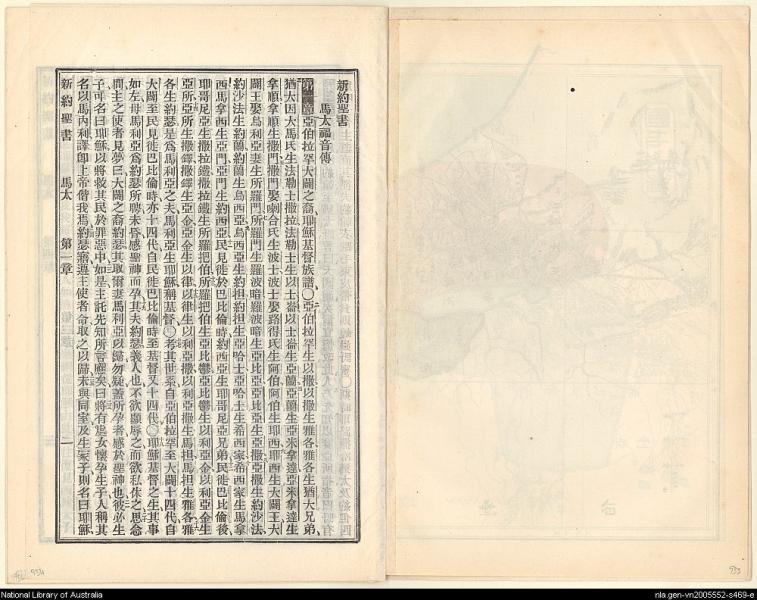 新約聖書
馬太福音傳
第一章亞伯拉罕大闢之裔耶穌基督族譜〇亞伯拉罕生以撒以撒生雅各雅各生猶大兄弟
猶大因大馬氏生法勒士撒拉法勒士生以士崙以士崙生亞蘭亞蘭生亞米拿達亞米拿達生
拿順拿順生撒門撒門娶喇合氏生波士波士娶路得氏生阿伯阿伯生耶西耶西生大闢王大
闢王娶烏利亞妻生所羅門所羅門生羅波暗羅波暗生亞比亞亞比亞生亞撒亞撒生約沙法
約沙法生約蘭約蘭生烏西亞烏西亞生約担約担生亞哈士亞哈士生希西家希西家生馬拿
西馬拿西生亞門亞門生約西亞民見徙於巴比倫時約西亞生耶哥尼亞兄弟民徙巴比倫後
耶哥尼亞生撒拉鐵撒拉鐵生所羅把伯所羅把伯生亞比鬱亞比鬱生以利亞金以利亞金生
亞所亞所生撒鐸撒鐸生亞金亞金生以律以律生以利亞撒以利亞撒生馬担馬担生雅各雅
各生約瑟是爲馬利亞之夫馬利亞生耶穌稱基督〇考其世系自亞伯拉罕至大闢十四代自
大闢至民見徙巴比倫時亦十四代自民徙巴比倫時至基督又十四代〇耶穌基督之生其事
如左母馬利亞爲約瑟所聘未昏感聖神而孕其夫約瑟義人也不欲顯辱之而欲私休之思念
間主之使者見夢曰大闢之裔約瑟其取爾妻馬利亞以歸勿疑蓋所孕者感於聖神也彼必生
子可名曰耶穌以將救其民於罪惡中如是主託先知所言應矣曰將有處女懷孕生子人稱其
名以馬內利譯即上帝偕我焉約瑟寤遵主使者命取之以歸未與同室及生冢子則名曰耶穌
新約聖書 馬太 第一章 一
National Library of Australia
nla.gen-vn2005552-s469-e